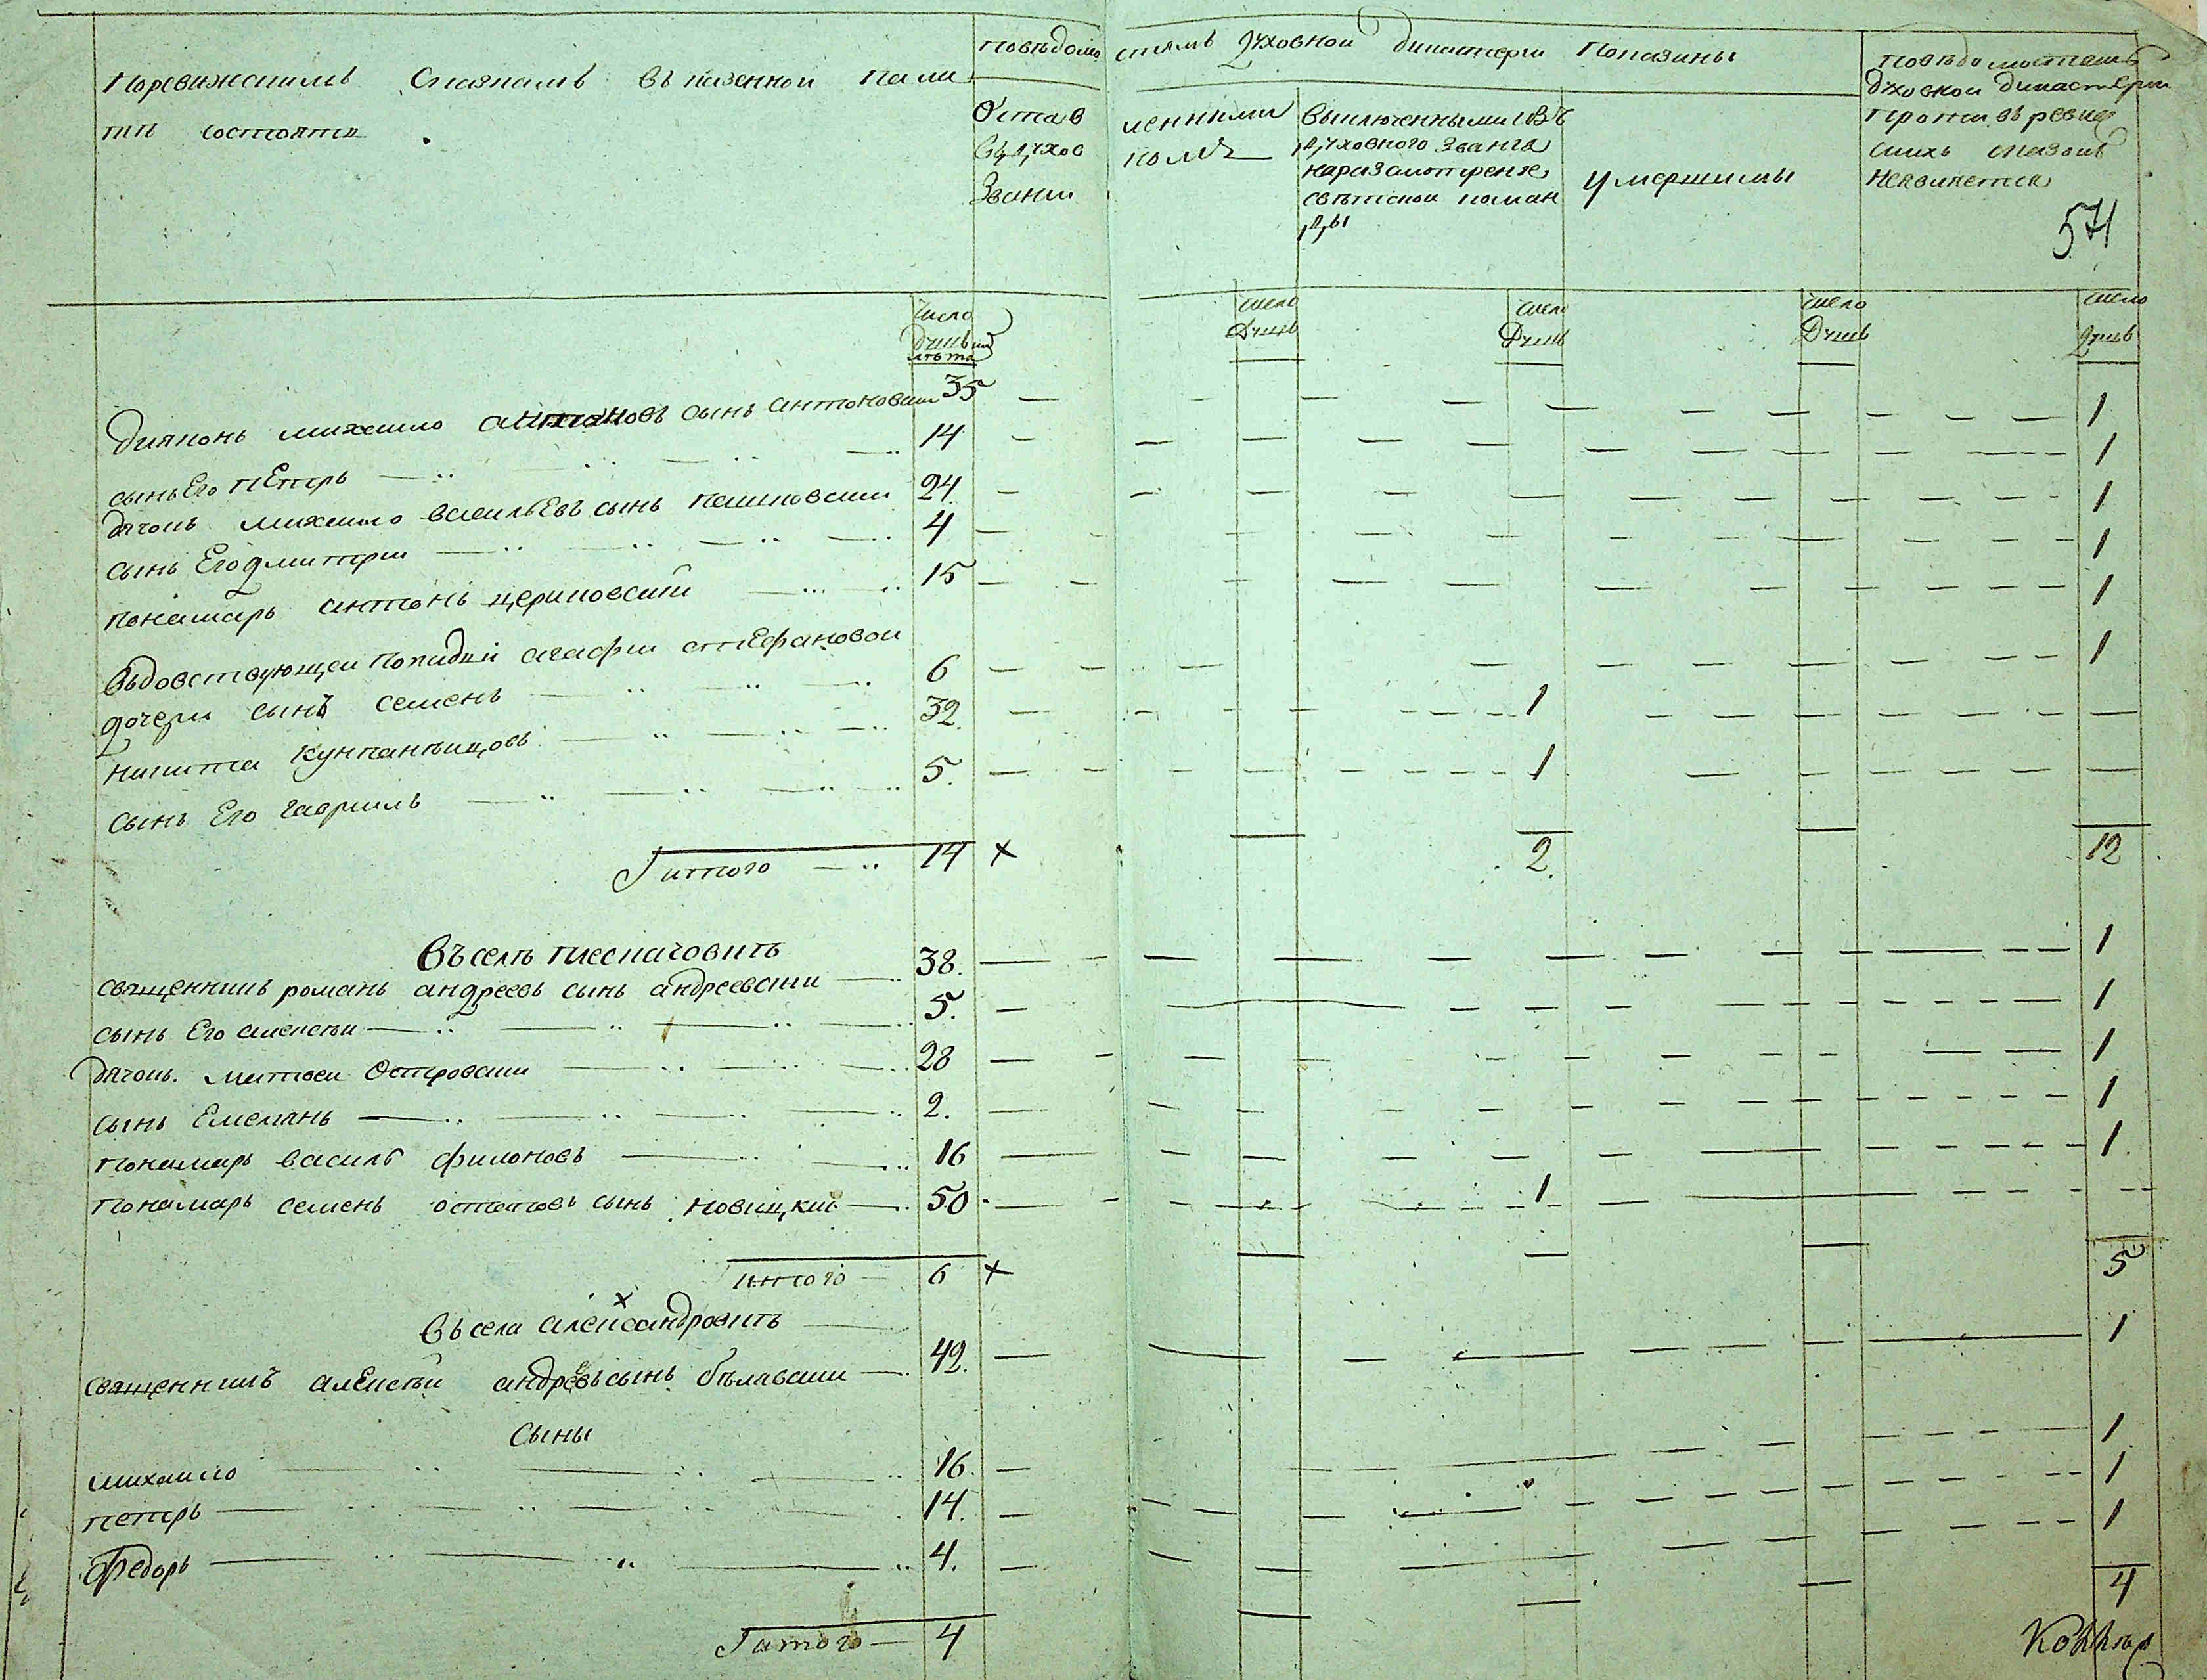 Поревижскимъ Сказкамъ въ казенной пала
тѣ состоятъ
Поведомо стямъ Духовной дикастерии Показаны
Остав ленними
въ духов номъ
Звании
выключенными изъ
духовного Звания
наразсмотрение
светской коман
ды
умершимы
Поведомостямъ
духовной дикастерии
противъ ревиз
скихъ сказокъ
неявляется
571
число душъ лѣта
число Душъ
число Душъ
число Душъ
число душъ
Дияконъ михаило антоновъ сынъ антоновски 35 1
сынъ Его пЕтръ 14 1
дячокъ михаило василЕвъ сынъ 24 1
сынъ Его дмитри 4 1
понамарь антонъ церковский 15 1
въдовствующеи попадьи агафии стЕфановои
дочери сынъ семенъ 6 1
никита 32 1
сынъ Его гаврилъ 5 1
Итого 14 × 2 12
Въ селѣ песчаговкѣ
священникъ романъ андреевъ сынъ андреевски 38 1
сынъ Его алексѣи 5 1
дячокъ матвеи Островски 28 1
сынъ Емелянъ 2 1
понамарь василь филоновъ 16 1
понамарь семенъ сынъ новицкий 50 1
итого 6 × 5
×
Въ села александровкѣ
священникъ алЕксѣи андрѣевъ сынъ бѣлявски 42 1
сыны
михаило 16 1
петръ 14 1
Федоръ 4 1
Итого 4 4